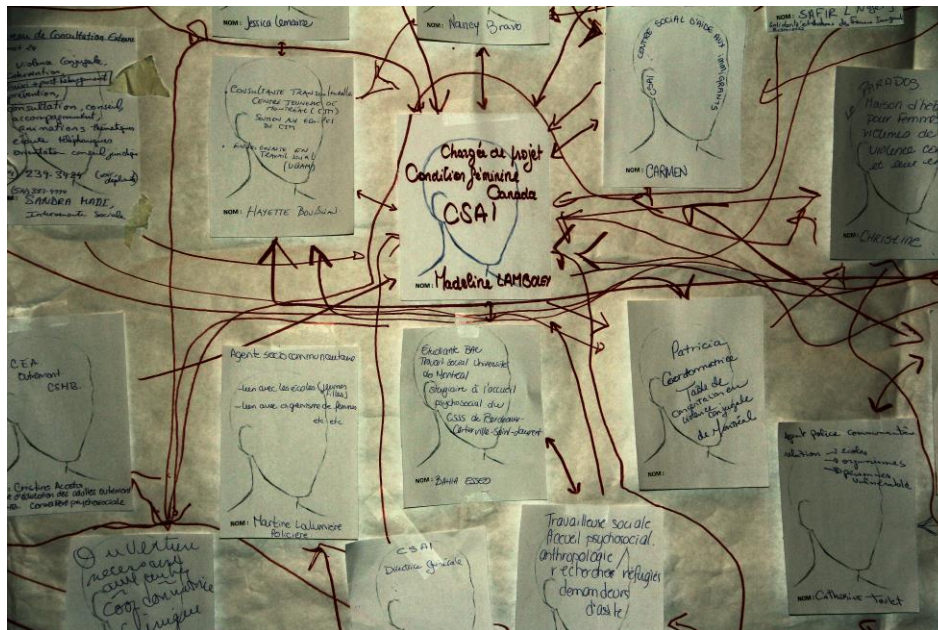 NOM: Jessica Lemaire
NOM: Nancy Bravo
NOM: SAFIR
de Consultation Externe
Violence Conjugale,
intervention,
prévention,
consultation, conseil,
accompagnement,
animations thématiques
écoute téléphonique
consultation conseil juridique
239-3984
SANDRA MADI,
Intervenante Sociale
CONSULTANTE TRANSCULTURELLE
CENTRE JEUNESSE DE
MONTRÉAL (CJM)
SOUTIEN AUX ÉQUIPES
DU CJM
EN
TRAVAIL SOCIAL
(UQAM)
NOM: HAYETTE
Chargée de projet
Condition féminine
Canada
CSAI
NOM: Madeline LAMBOLEY
CSAI CENTRE SOCIAL D'AIDE AUX IMMIGRANTS
NOM: CARMEN
PARADOS
Maison d'héb
pour femmes
victimes de
violence co
et leurs
NOM: CHRISTINE
CEA
outremont
CSMB.
Christine Acosta
d'éducation des adultes outremont
Conseillère psychosociale
Agente sociocommunautaire
- lien avec les écoles (jeunes
filles)
- lien avec organisme de femmes
etc etc
NOM: Martine Lalumière
Policière
Étudiante BAC
Travail social Université
de Montréal
stagiaire à l'accueil
psychosocial du
CSSS de Bordeaux-
Cartierville-Saint-Laurent
NOM: BAHIA ESSED
Patricia
Coordonnatrice
Table de
concertation en
violence conjugale
de Montréal
NOM:
agent police communautaire
relation → écoles
→ organismes
→ personnes
vulnérable
NOM: Catherine
Ouverture
nécessaire
Coordonnatrice
clinique
CSAI
Directrice générale
Travailleuse sociale
Accueil psychosocial.
anthropologie
recherches réfugiés
demandeurs
d'asile